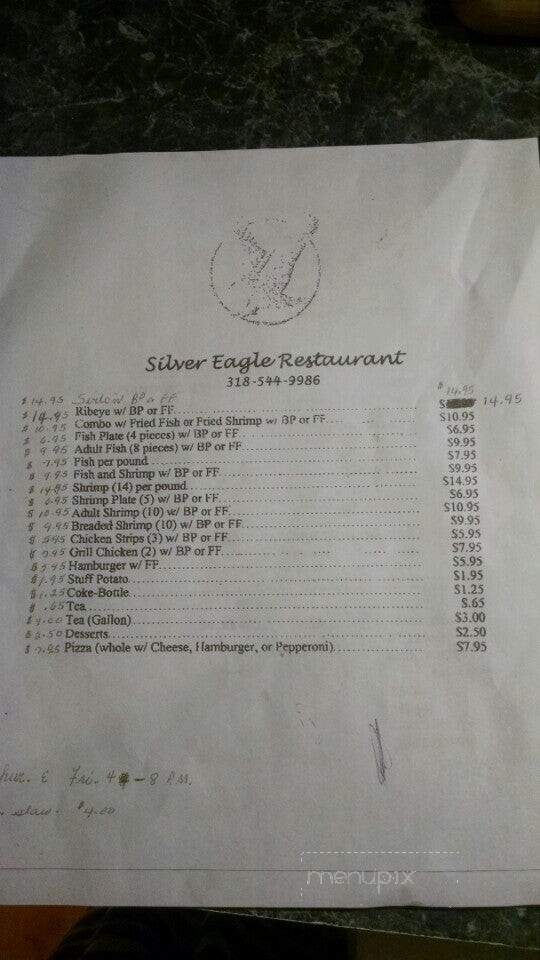 Silver Eagle Restaurant
318-544-9986
$ 14.95 Sirloin BP or FF $ 14.95
$ 14.95 Ribeye w/ BP or FF $ 14.95
$ 10.95 Combo w/ Fried Fish or Fried Shrimp w/ BP or FF $10.95
$ 6.95 Fish Plate (4 pieces) w/ BP or FF $6.95
$ 9.95 Adult Fish (8 pieces) w/ BP or FF $9.95
$ 7.95 Fish per pound $7.95
$ 9.95 Fish and Shrimp w/ BP or FF $9.95
$ 14.95 Shrimp (14) per pound $14.95
$ 6.95 Shrimp Plate (5) w/ BP or FF $6.95
$ 10.95 Adult Shrimp (10) w/ BP or FF $10.95
$ 9.95 Breaded Shrimp (10) w/ BP or FF $9.95
$ 5.95 Chicken Strips (3) w/ BP or FF $5.95
$ 7.95 Grill Chicken (2) w/ BP or FF $7.95
$ 5.95 Hamburger w/ FF $5.95
$ 1.95 Stuff Potato $1.95
$ 1.25 Coke-Bottle $1.25
$ .65 Tea $.65
$ 3.00 Tea (Gallon) $3.00
$ 2.50 Desserts $2.50
$ 7.95 Pizza (whole w/ Cheese, Hamburger, or Pepperoni) $7.95
hur. & Fri. 4 - 8 P.M.
slaw - $4.00
menupix